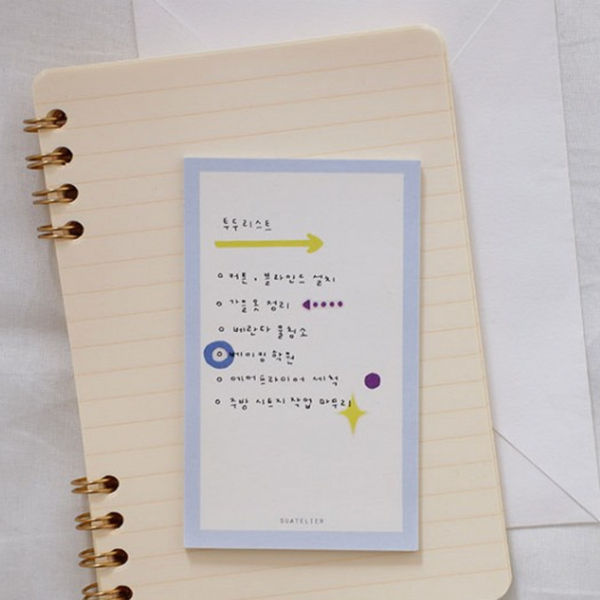 투두리스트
o 커튼, 블라인드 설치
o 가을옷 정리
o 베란다 물청소
o 베이킹 학원
o 에어프라이어 세척
o 주방 시트지 작업 마무리
SUATELIER